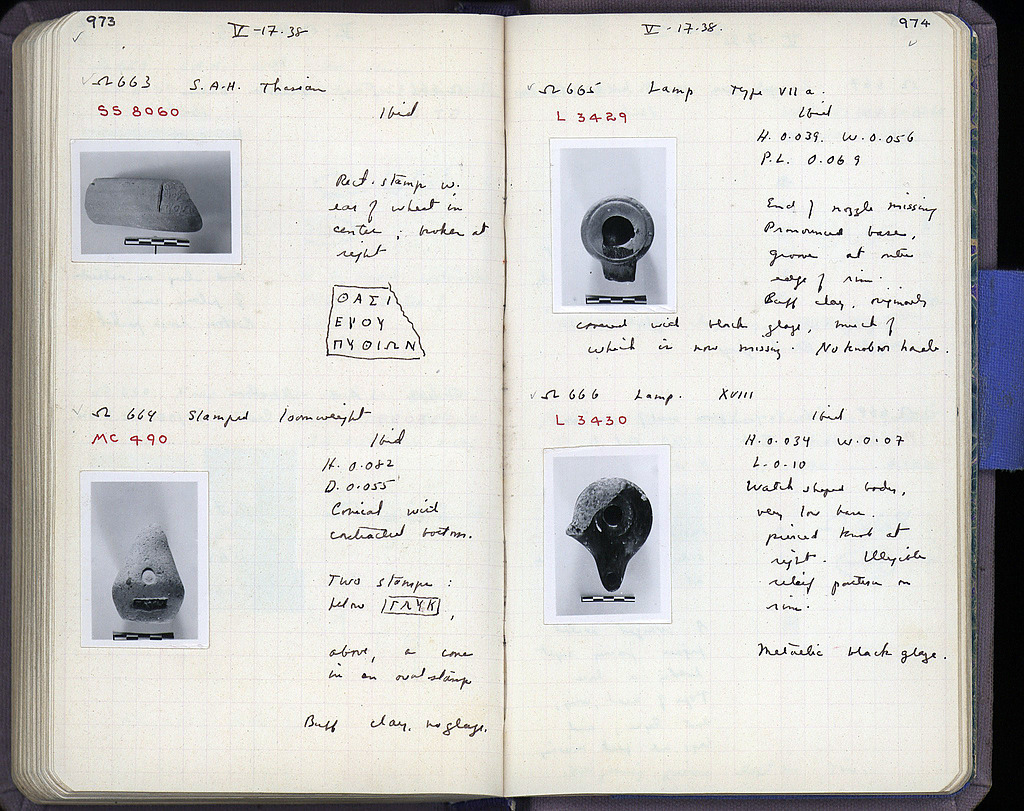 973
V-17-38
Ω 663 S.A.H. Thasian
SS 8060
Ibid
Rect. stamp w.
ear of wheat in
center; broken at
right
ΘΑΣΙ
ΕΡΟΥ
ΠΥΘΙΩΝ
Ω 664 Stamped loomweight
MC 490
Ibid
H. 0.082
D. 0.055
Conical with
contracted bottom.
Two stamps:
below ΓΛΥΚ,
above, a cone
in an oval stamp
Buff clay, no glaze.
974
V-17-38.
Ω 665 Lamp Type VII a.
L 3429
Ibid
H. 0.039. W. 0.056
P.L. 0.069
End of nozzle missing
Pronounced base,
groove at outer
edge of rim.
Buff clay, originally
covered with black glaze, much of
which is now missing. No knob or handle.
Ω 666 Lamp. XVIII
L 3430
Ibid
H. 0.034 W. 0.07
L. 0.10
Watch shaped body,
very low base.
pierced knob at
right. Illegible
relief pattern on
rim.
Metallic black glaze.